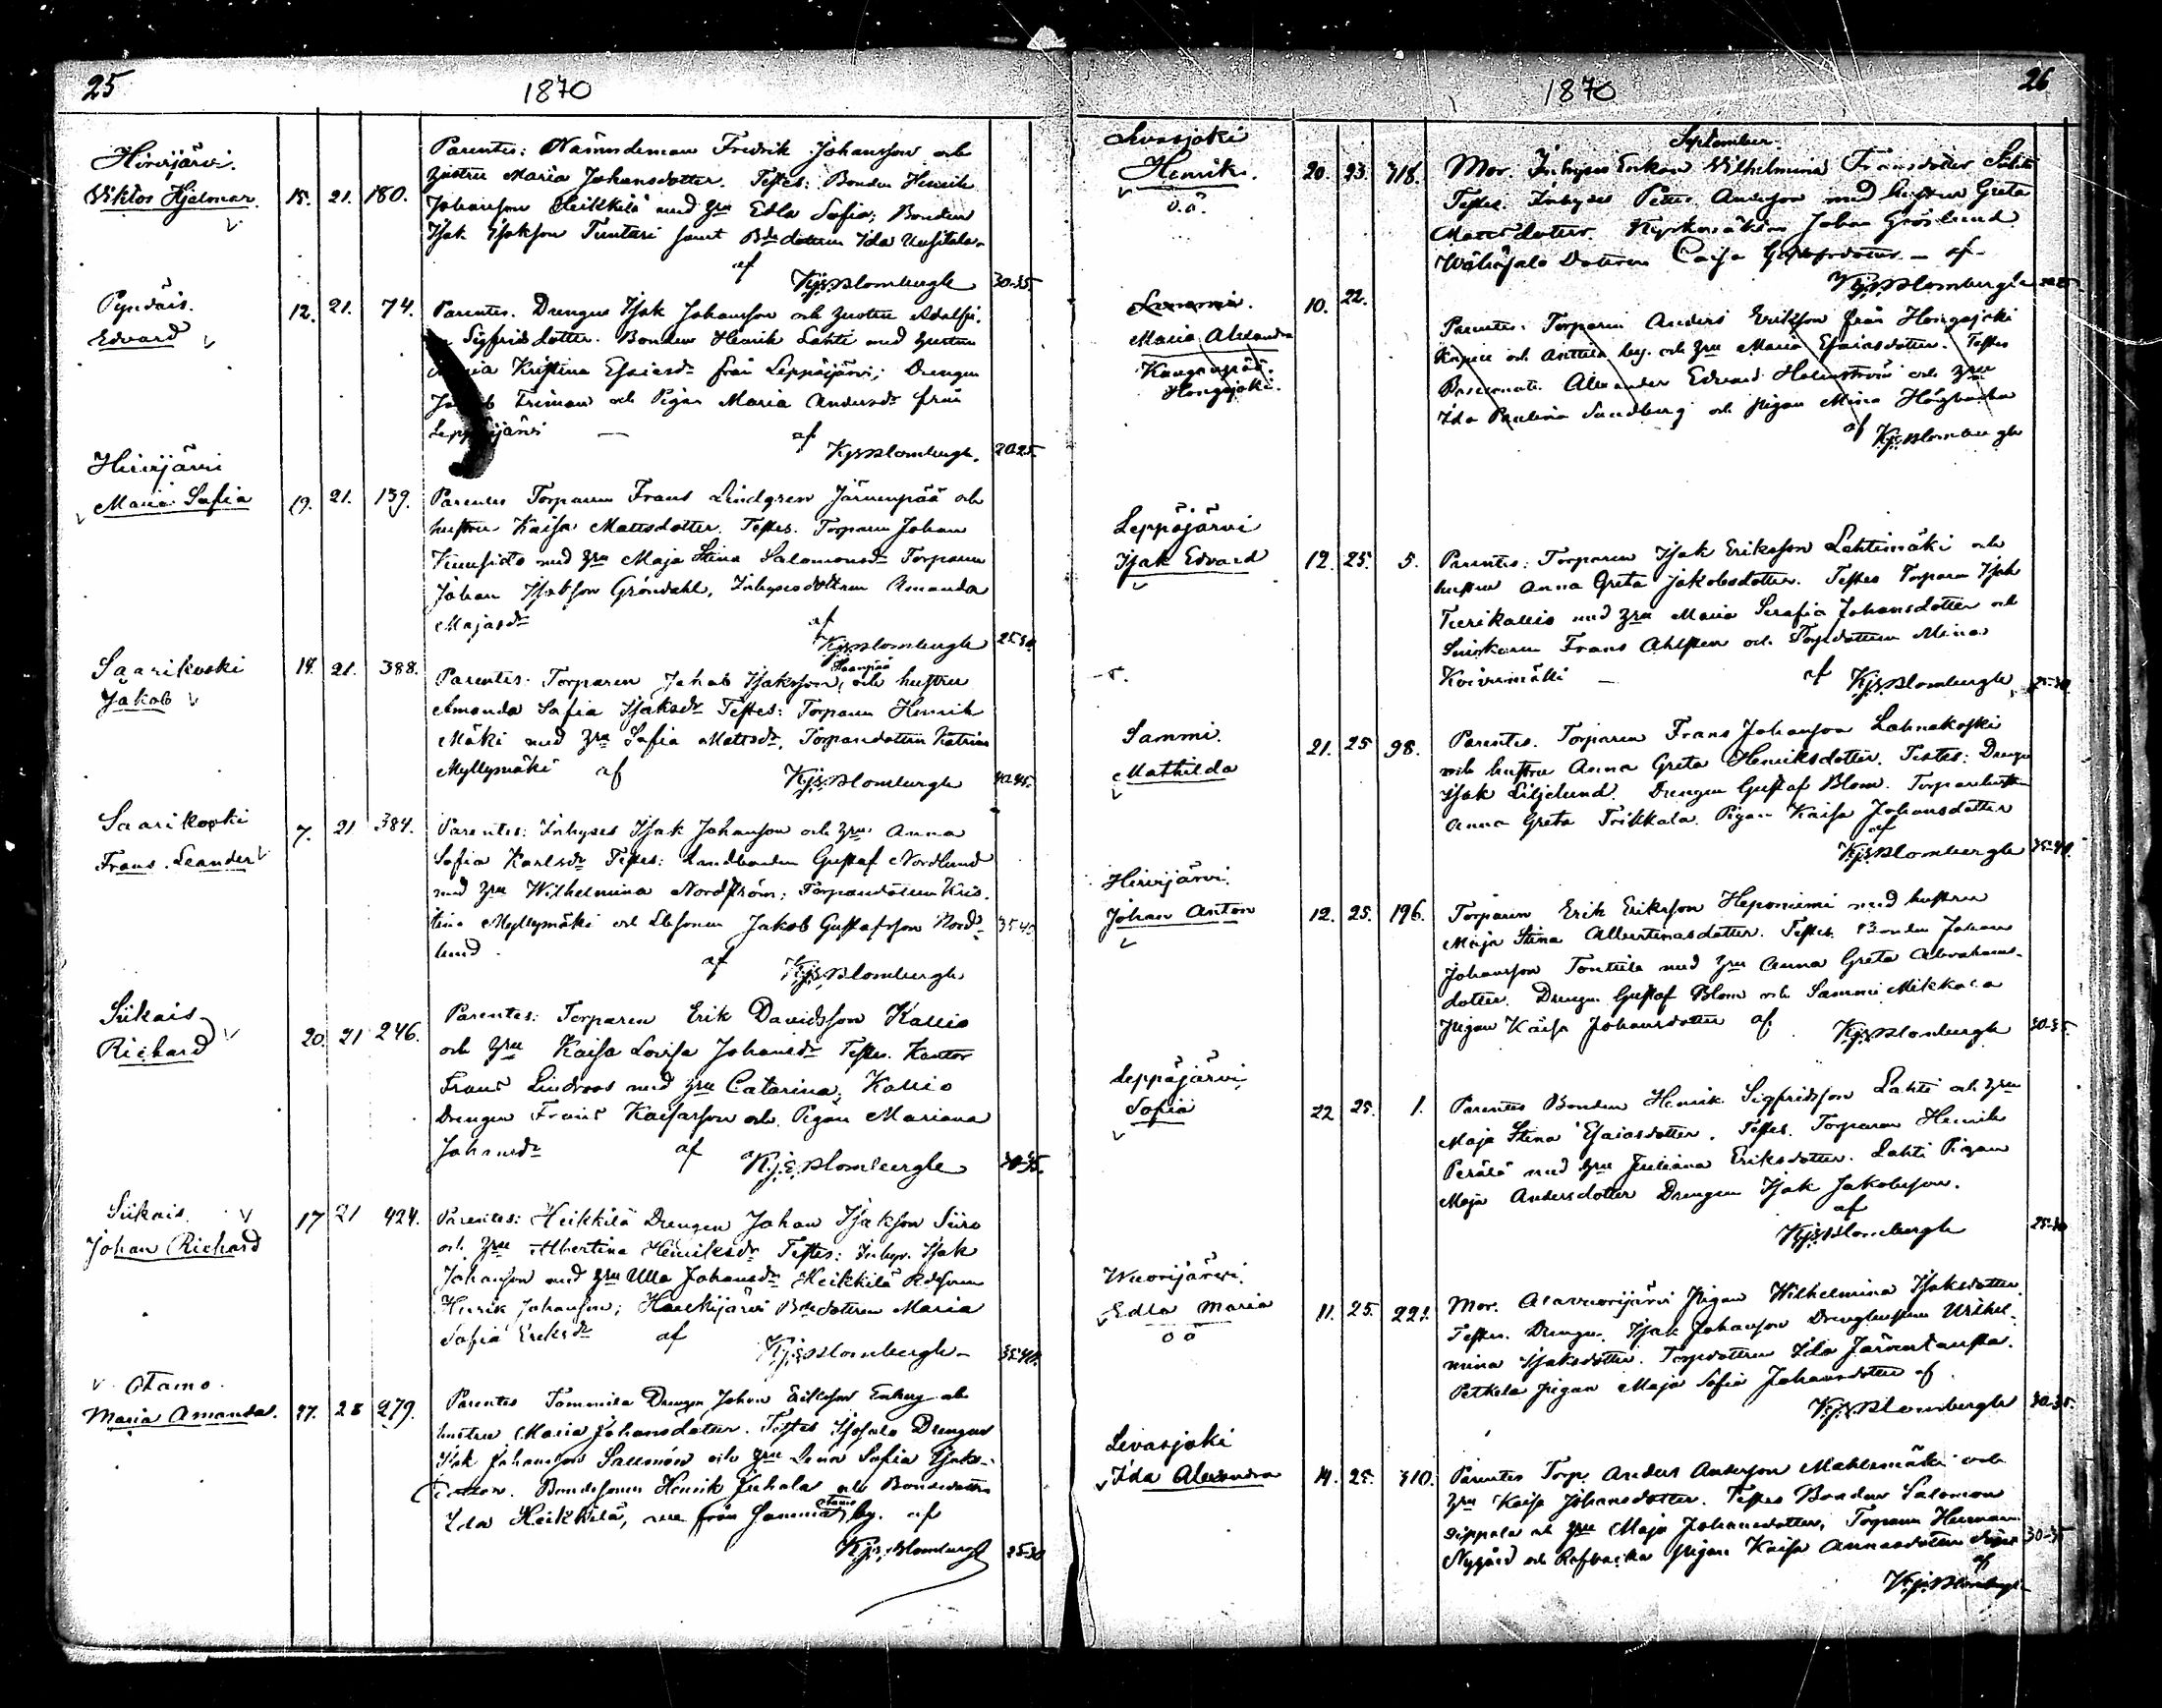 25
1870
Hirvijärvi.
Viktor Hjalmar.
15. 21. 180.
Parentes: Nämndeman Fredrik Johansson och
hustru Maria Johansdotter. Testes: Bonden Henrik
Johansson Heikkilä med hru Edla Sofia; Bonden
Isak Isaksson Tuntari samt Bde dottern Ida Uusitalo
af
Kjs Blombergh 30-35.
Pyndäis.
Edvard
12. 21. 74.
Parentes. Drengen Isak Johansson och hustru Adolfi.
Sigfridsdotter. Bonden Henrik Lahti med hustru
Maria Kristina Esaiasdr från Leppäjärvi; Drengen
Friman och Pigan Maria Andersdr från
Leppäjärvi — af
Kjs Blombergh. 20-25.
Hirvijärvi
Maria Sofia
19. 21. 139.
Parentes Torparen Frans Lindgren Järvenpää och
hustru Kaisa Mattsdotter. Testes. Torparen Johan
Kuusisto med hru Maja Stina Salomonsdr Torparen
Johan Isaksson Gröndahl, Inhysesdottren Amanda
Majasdr af
Kjs Blombergh 25-30
Saarikoski
Jakob
14. 21. 388.
Parentes. Torparen Jakob Isaksson, och hustru
Amanda Sofia Isaksdr Testes: Torparen Henrik
Mäki med hru Sofia Mattsdr, Torparedottren Katrina
Myllymäki af
Kjs Blombergh 40-45.
Saarikoski
Frans Leander
7. 21 384.
Parentes: Inhyses Isak Johansson och hru Anna
Sofia Karlsdr Testes: Landbonden Gustaf Nordlund
med hru Wilhelmina Nordström; Torparedottren Kris-
tina Myllymäki och Lbsonen Jakob Gustafsson Nord- 35-40
lund. af
Kjs Blombergh
Siikais
Richard
20. 21 246.
Parentes: Torparen Erik Davidsson Kallio
och hru Kaisa Lovisa Johansdr Testes. Kantor
Frans Lindroos med hru Catarina; Kallio
Drengen Frans Kaisasson och Pigan Mariana
Johansdr af
Kjs Blombergh 30-35.
Siikais.
Johan Richard
17 21 424.
Parentes: Heikkilä Drengen Johan Isaksson Siiro
och hru Albertina Henriksdr Testes: Inhys. Isak
Johansson med hru Ulla Johansdr Heikkilä
Henrik Johansson; Haukijärvi Bdedottren Maria
Sofia Eriksdr af
Kjs Blombergh 35-40.
Otamo.
Maria Amanda.
27. 28 279.
Parentes Tommila Drengen Johan Eriksson Enberg och
hustru Maria Johansdotter. Testes Isotalo Drengen
Isak Johansson Salmén och hru Lena Sofia Isaks-
dotter. Bondesonen Henrik Juhala och Bondedottren
Ida Heikkilä, från Otamo by. af
Kjs Blombergh 25-30
26
1870
September.
Levasjoki
Henrik.
o.ä.
20. 23. 318.
Mor. Inhyses Enkan Vilhelmina Fransdotter Lahti
Testes. Inhyses Petter Andersson med hustru Greta
Mattsdotter. Kyrkovärden Johan Grönlund
Dottern Caisa Gustafsdotter — af
Kjs Blombergh
Maria Alexandra
Kangenpää.
Hongojoki.
10. 22.
Parentes: Torparen Anders Eriksson från Hongojoki
och Anttila by. och hru Maria Esaiasdotter. Testes
Alexander Edvard Holmström och hru
Ida Paulina Sandberg och pigan Mina Högbacka
af Kjs Blombergh
Leppäjärvi
Isak Edvard
12. 25. 5.
Parentes: Torparen Isak Eriksson Lehtimäki och
hustru Anna Greta Jakobsdotter. Testes Torparen Isak
Turikallio med hru Maria Serafia Johansdotter och
Snickaren Frans Ahlsten och Torpdottren Mina
Koivumäki — af Kjs Blombergh 25-30
Sammi.
Mathilda
21. 25 98.
Parentes. Torparen Frans Johansson Lahnakoski
och hustru Anna Greta Henriksdotter. Testes: Drengen
Isak Liljelund. Drengen Gustaf Blom. Torparehustrun
Anna Greta Trikkala. Pigan Kaisa Johansdotter
af
Kjs Blombergh 35-40.
Hirvijärvi.
Johan Anton
12. 25. 196.
Torparen Erik Eriksson Heponiemi med hustru
Maja Stina Albertinasdotter. Testes. Bonden Johan
Johansson Tontila med hru Anna Greta Abrahams-
dotter. Drengen Gustaf Blom och Sammi Mikkola
pigan Kaisa Johansdotter af. Kjs Blombergh 30-35.
Leppäjärvi
Sofia
22 25. 1.
Parentes Bonden Henrik Sigfridsson Lahti och hru
Maja Stina Esaiasdotter. Testes. Torparen Henrik
Perälä med hru Juliana Eriksdotter. Lahti Pigan
Maja Andersdotter Drengen Isak Jakobsson.
af
Kjs Blombergh 25-30
Wuorijärvi.
Edla Maria
o ä
11. 25. 221.
Mor. Alavuorijärvi Pigan Wilhelmina Isaksdotter.
Testes. Drengen. Isak Johansson Drenghustrun Wilhel-
mina Isaksdotter. Torpdottren Ida Järventausta.
Petkela pigan Maja Sofia Johansdotter af.
Kjs Blombergh 30-35.
Levasjoki
Ida Alexandra
14. 25. 310.
Parentes Torp. Anders Andersson Mahlamäki och
hru Kaisa Johansdotter. Testes Bonden Salomon
Sippola och hru Maja Johansdotter, Torparen Herman
Nygård och Rosbacka pigan Kaisa Annasdotter 30-35
af
Kjs Blombergh